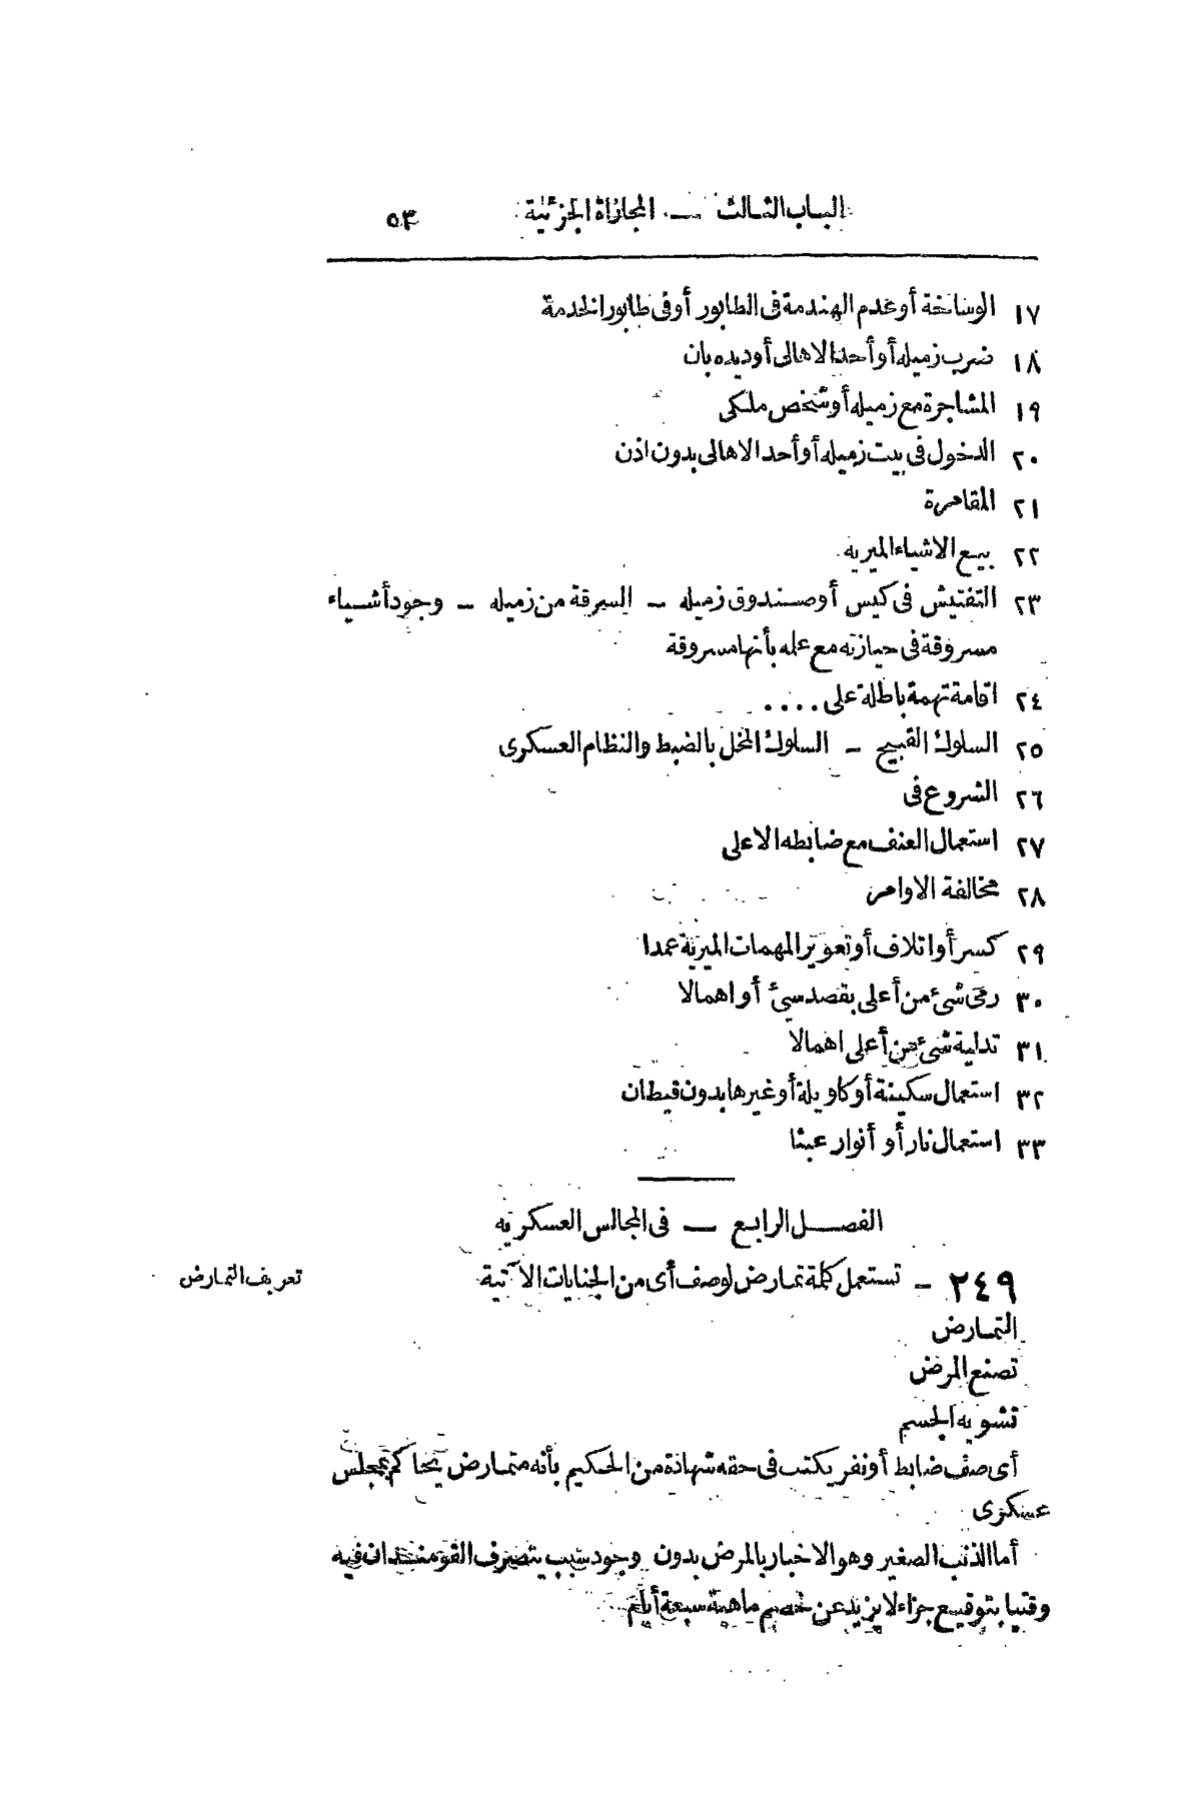 الباب الثالث — المجازاة الجزئية ٥٣
١٧ الوساخة أو عدم الهندمة فى الطابور أو فى طابور الخدمة
١٨ ضرب زميله أو أحد الاهالى أو ديده بان
١٩ المشاجرة مع زميله أو شخص ملكى
٢٠ الدخول فى بيت زميله أو أحد الاهالى بدون اذن
٢١ المقامرة
٢٢ بيع الاشياء الميريه
٢٣ التفتيش فى كيس أو صندوق زميله — السرقة من زميله — وجود أشياء
مسروقة فى حيازته مع علمه بأنها مسروقة
٢٤ اقامة تهمة باطلة على ....
٢٥ السلوك القبيح — السلوك المخل بالضبط والنظام العسكرى
٢٦ الشروع فى
٢٧ استعمال العنف مع ضابطه الاعلى
٢٨ مخالفة الاوامر
٢٩ كسر أو اتلاف أو تعوير المهمات الميرية عمدا
٣٠ رمى شئ من أعلى بقصد سيئ أو اهمالا
٣١ تدلية شئ من أعلى اهمالا
٣٢ استعمال سكينة أو كاويلة أو غيرها بدون قيطان
٣٣ استعمال نار أو أنوار عبثا
الفصل الرابع — فى المجالس العسكريه
٢٤٩ — تستعمل كلمة تمارض لوصف أى من الجنايات الآتية
تعريف التمارض
التمارض
تصنع المرض
تشويه الجسم
أى صف ضابط أو نفر يكتب فى حقه شهادة من الحكيم بأنه متمارض يحاكم بمجلس
عسكرى
أما الذنب الصغير وهو الاخبار بالمرض بدون وجود سبب يتصرف القومندان فيه
وقتيا بتوقيع جزاء لا يزيد عن خصم ماهية سبعة أيام